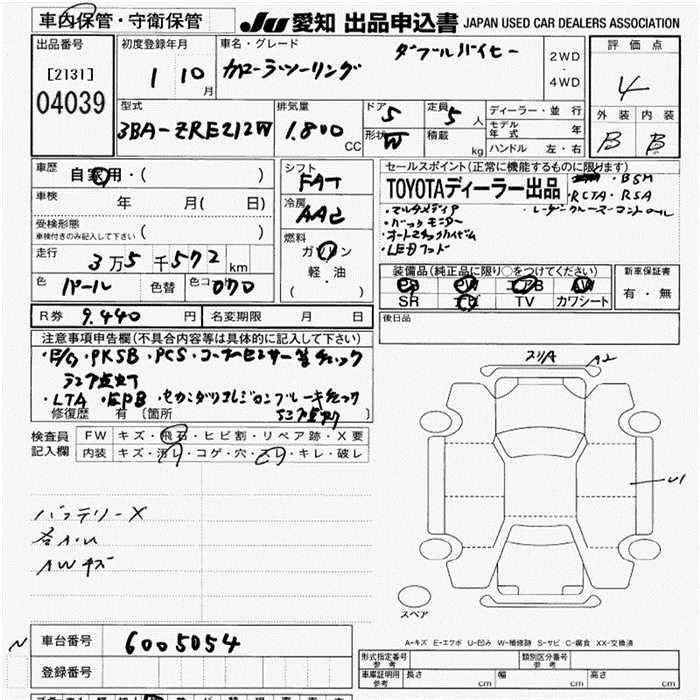 車内保管・守衛保管
JU 愛知 出品申込書 JAPAN USED CAR DEALERS ASSOCIATION
出品番号
[2131]
04039
初度登録年月
1 10月
車名・グレード
ダブルバイビー
カローラツーリング
2WD
・
4WD
評価点
4
外装 内装
B B
型式
3BA-ZRE212W
排気量
1.800 CC
ドア 5
形状 W
定員 5 人
積載 kg
ディーラー・並行
モデル年式 年
ハンドル 左・右
車歴 自家用・( )
車検 年 月( 日)
受検形態
車検付きのみ記入して下さい ( )
走行 3万5千572km
色 パール 色替 色コード 070
シフト
FAT
冷房
AAC
燃料
ガソリン
軽・油
( )
セールスポイント(正常に機能するものに限ります)
TOYOTAディーラー出品
・BSM
・RCTA・RSA
・マルチメディア
・レーダークルーズコントロール
・バックモニター
・オートマチックハイビーム
・LEDフォグ
装備品(純正品に限り○をつけてください)
PS PW エアB AW
SR ナビ TV カワシート
新車保証書
有・無
後日品
R券 9.440 円 名変期限 月 日
注意事項申告欄(不具合内容等は具体的に記入して下さい)
・E/G・PKSB・PCS・コーナーセンサー等チェック
ランプ点灯
・LTA・EPB・セカンダリコリジョンブレーキチェック
ランプ点灯
修復歴 有 〔箇所 〕
検査員
記入欄
FW キズ・飛石・ヒビ割・リペア跡・X要
内装 キズ・汚レ・コゲ・穴・スレ・キレ・破レ
バッテリーX
各A・U
AWキズ
スリA A2
U1
スペア
N
車台番号 6005054
登録番号
A-キズ E-エクボ U-凹み W-補修跡 S-サビ C-腐食 XX-交換済
型式指定番号
参考
類別区分番号
参考
車庫証明用
参考
長さ cm 幅 cm 高さ cm